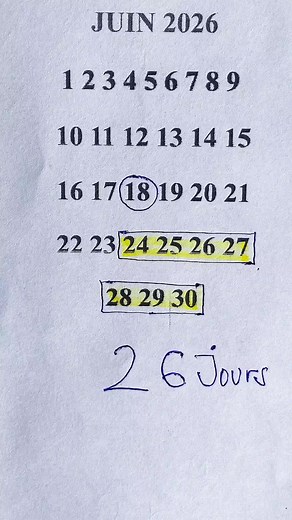 JUIN 2026
1 2 3 4 5 6 7 8 9
10 11 12 13 14 15
16 17 18 19 20 21
22 23 24 25 26 27
28 29 30
26 jours